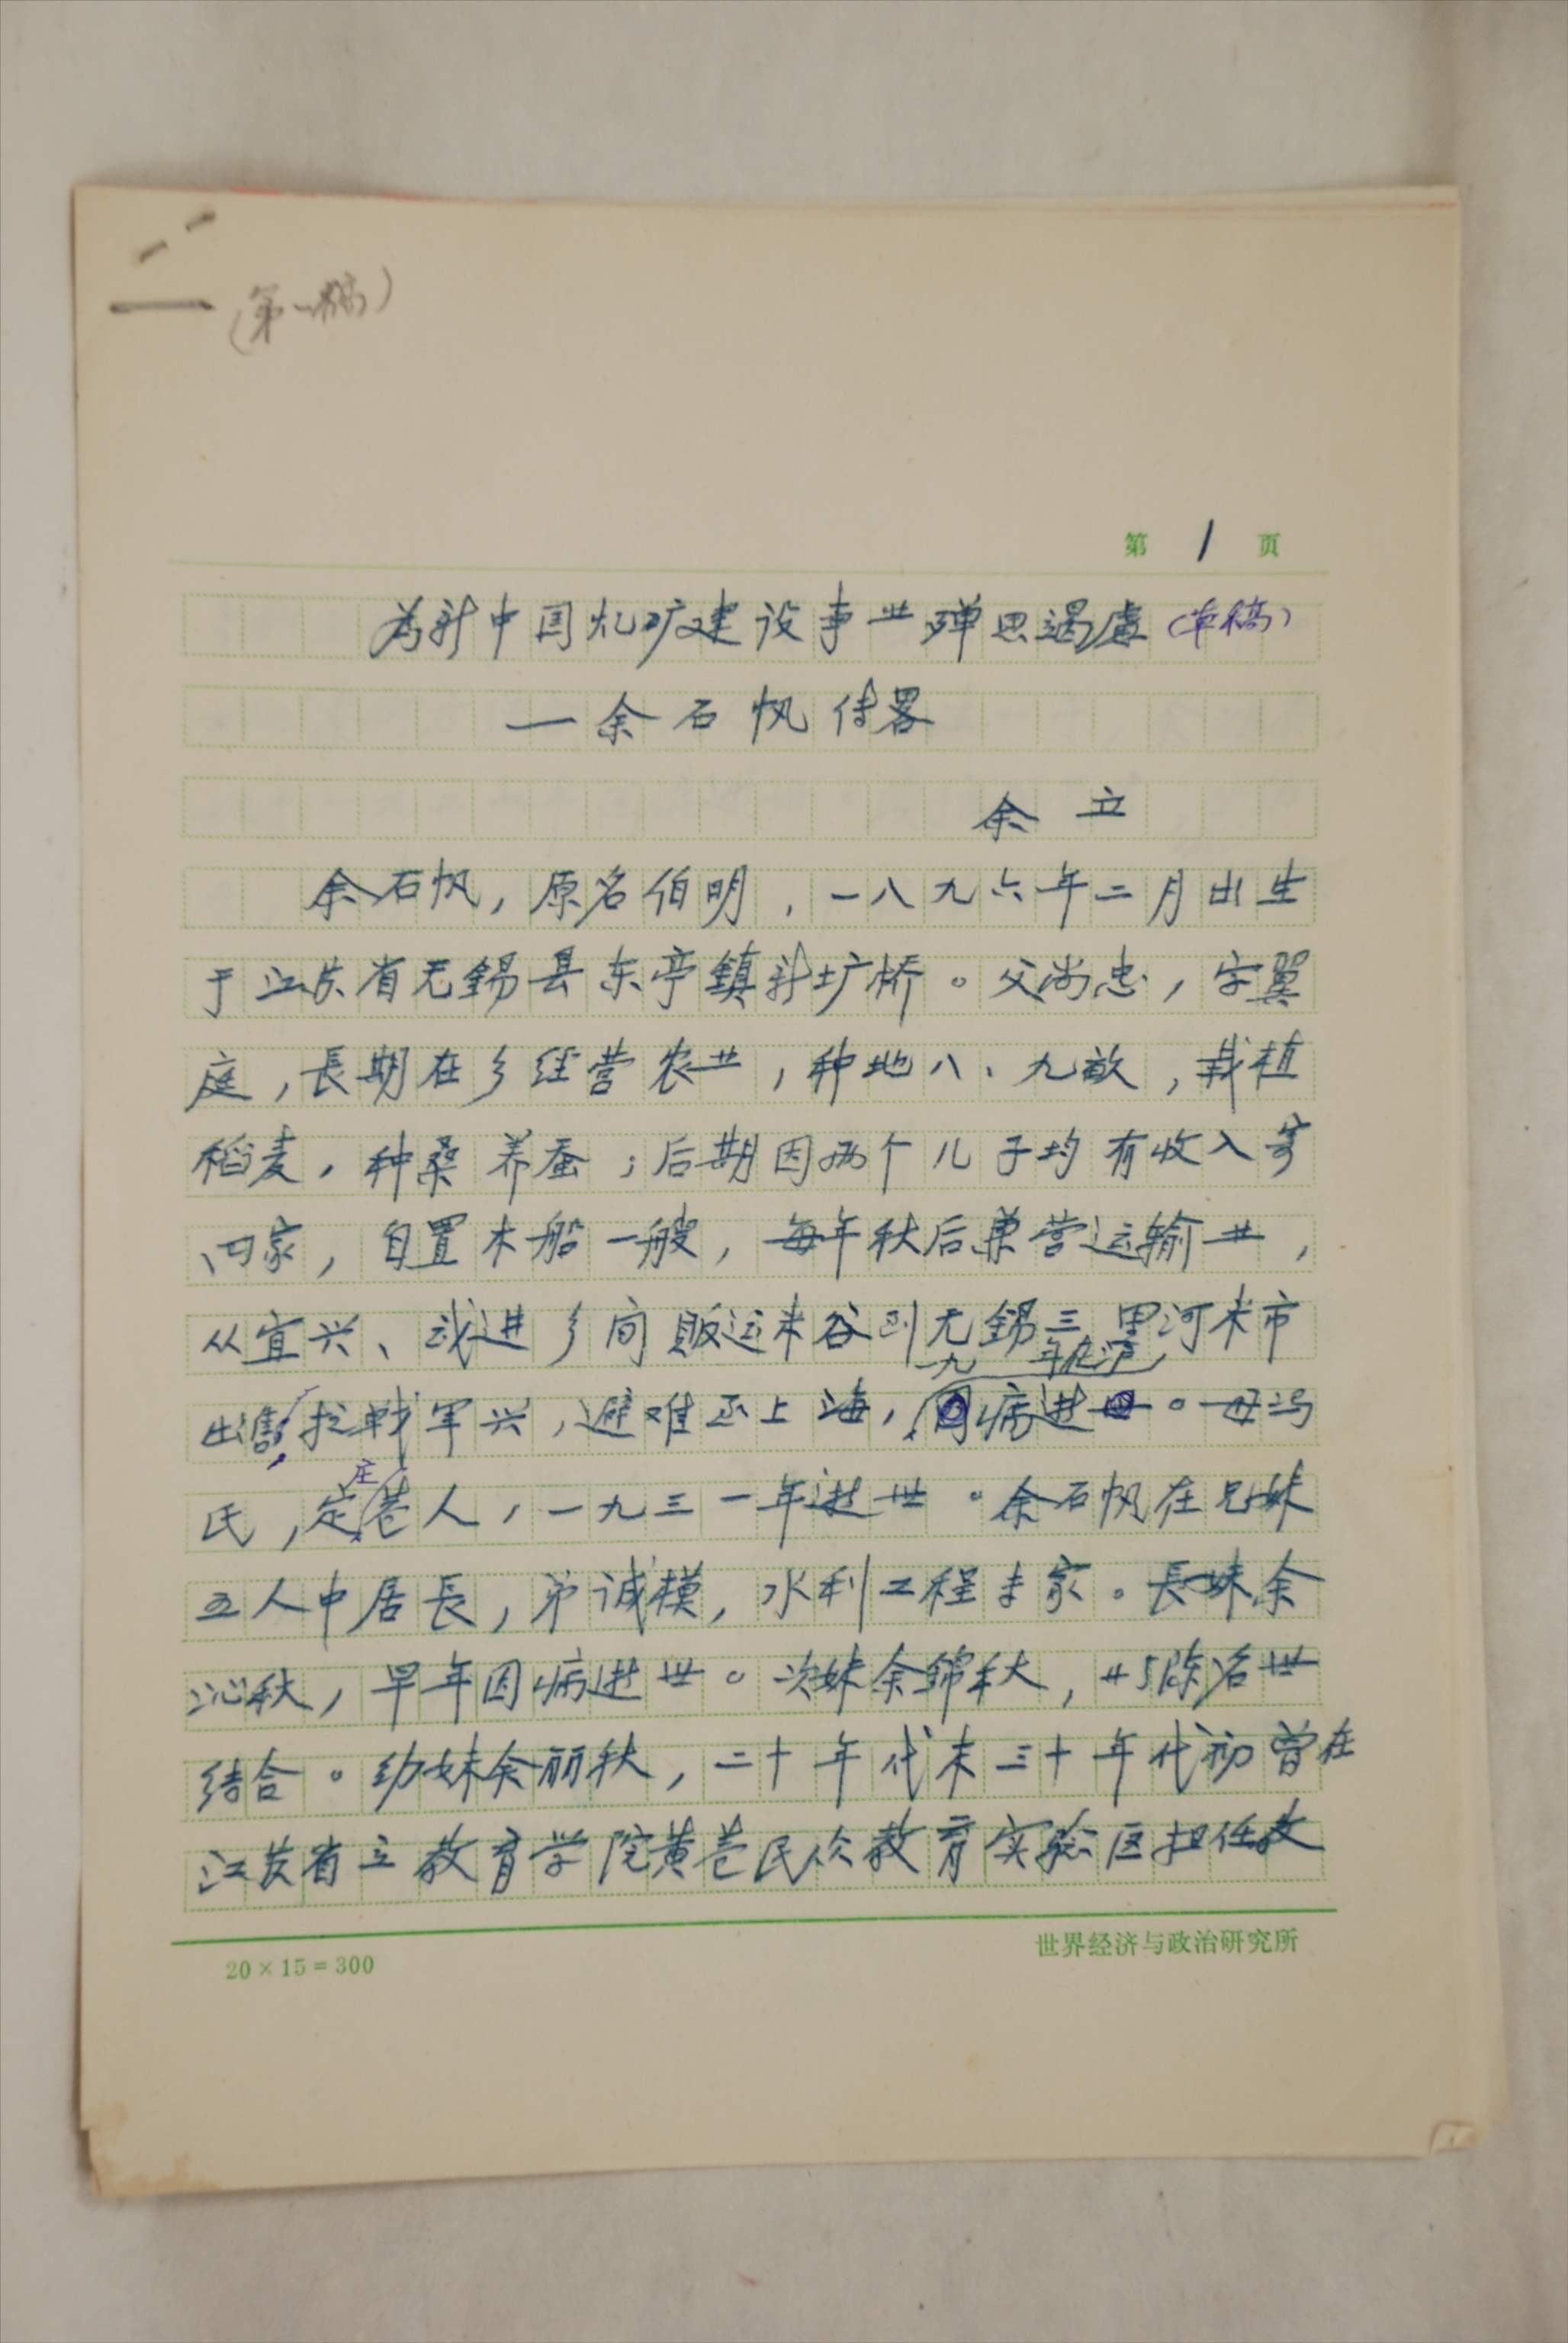 (第一稿)
第 1 页
为新中国矿建设事业殚思竭虑(草稿)
—余石帆传略
余立
余石帆,原名伯明,一八九六年二月出生
于江苏省无锡县东亭镇新圹桥。父尚忠,字翼
庭,長期在乡经营农业,种地八、九亩,栽植
稻麦,种桑养蚕;后期因两个儿子均有收入寄
回家,自置木船一艘,每年秋后兼营运输业,
从宜兴、武进乡间贩运米谷到无锡三里河米市
一九 年在沪
出售,抗战军兴,避难至上海,病逝。母冯
庄
氏,定巷人,一九三一年逝世。余石帆在兄妹
五人中居長,弟诚模,水利工程专家。長妹余
沁秋,早年因病逝世。次妹余锦秋,与陈洺世
结合。幼妹余丽秋,二十年代末三十年代初曾在
江苏省立教育学院黄巷民众教育实验区担任教
20×15=300
世界经济与政治研究所